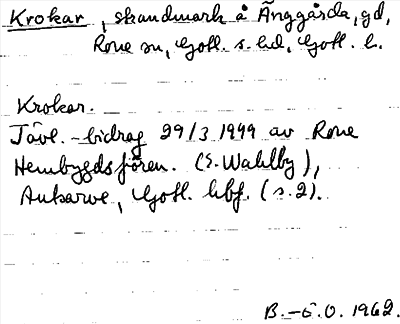 Krokar, skandmark å Änggårda, gd,
Rone sn, Gotl. s. hd, Gotl. l.
Krokar.
Tävl.-bidrag 29/3 1949 av Rone
Hembygdsfören. (E. Wahlby),
Ankarve, Gotl. hbf. (s. 2).
B.-Ö.O. 1962.